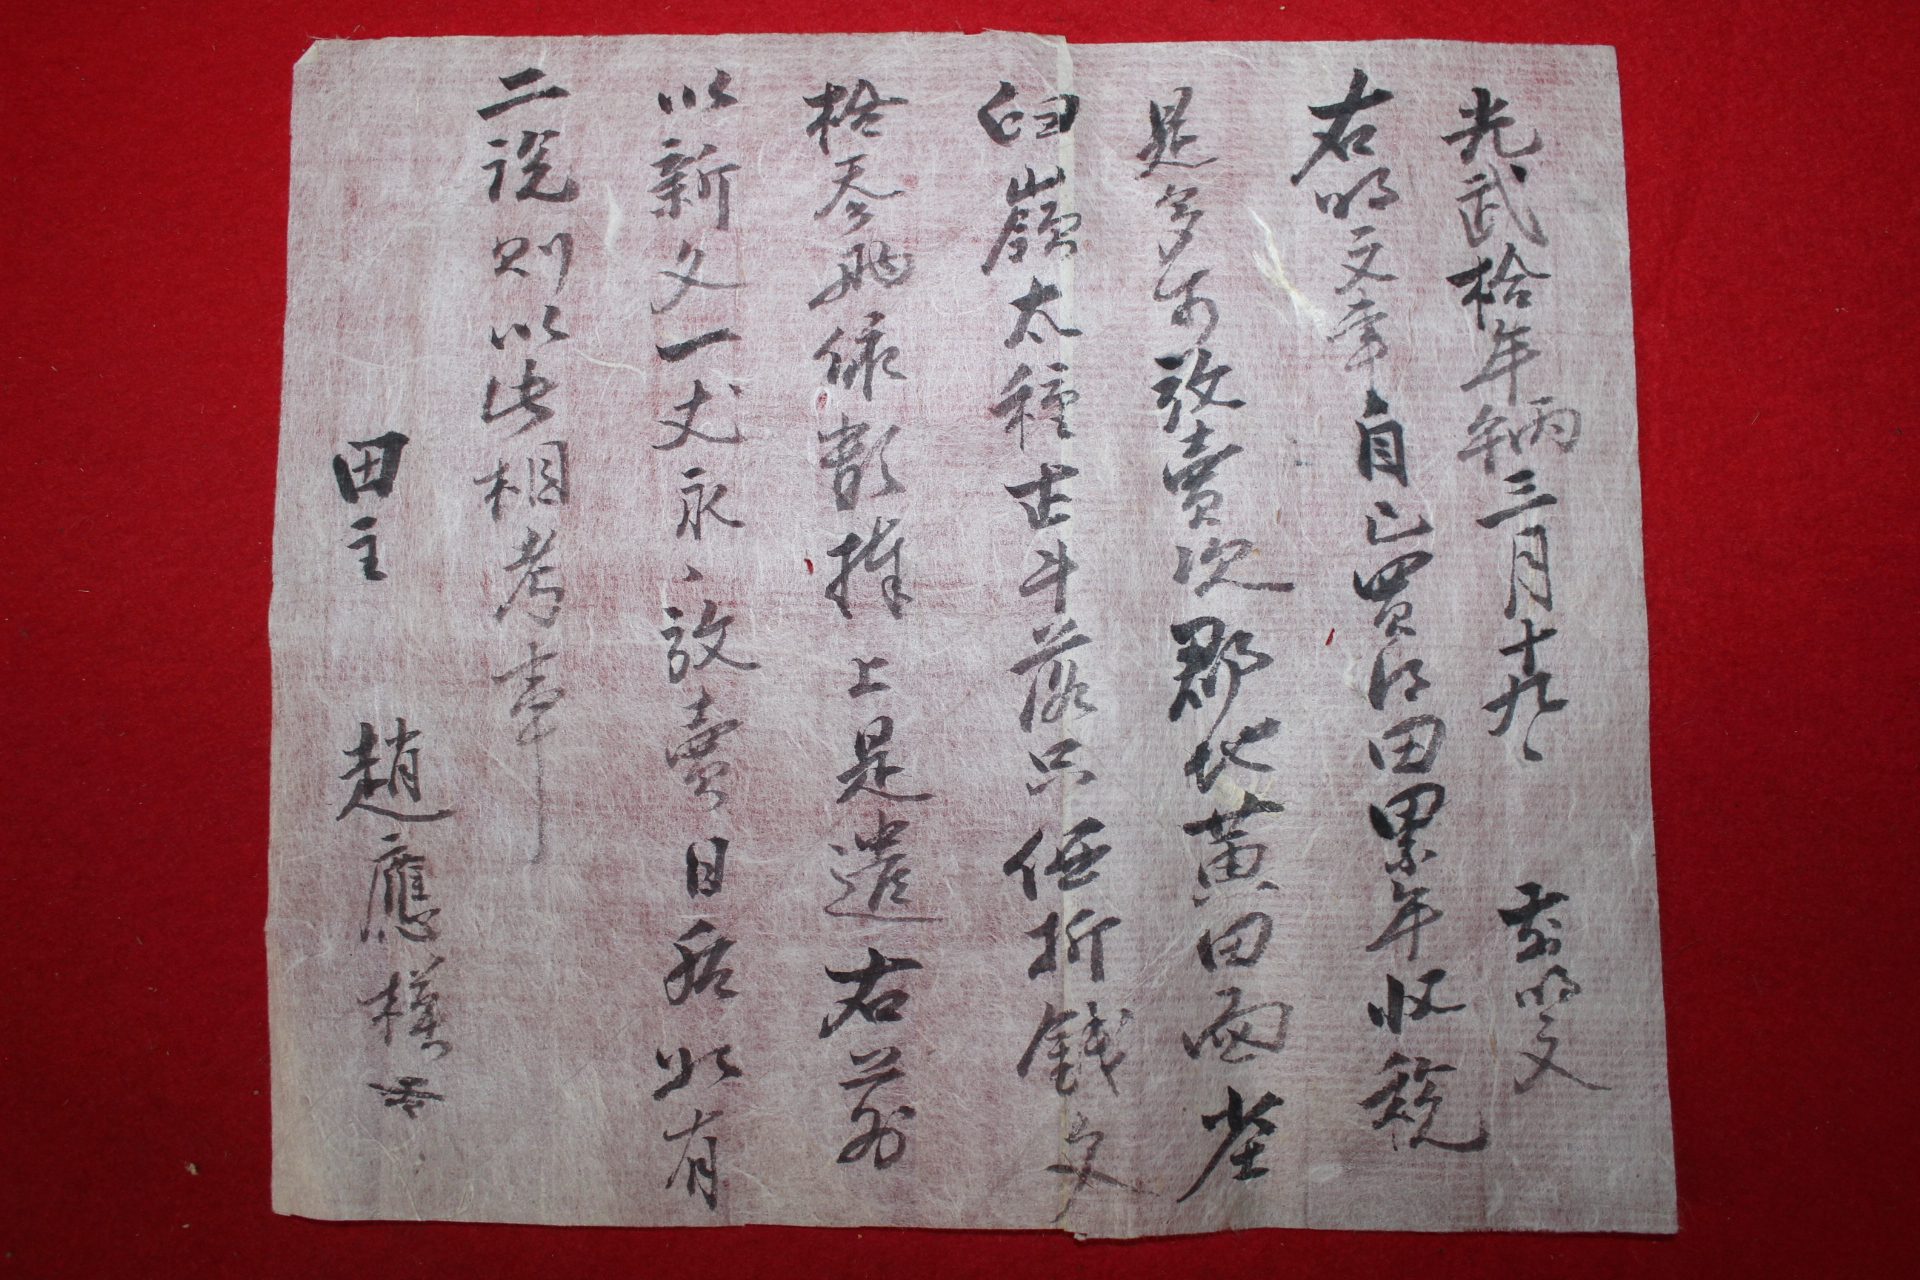 光武拾年丙午三月十九 前明文
右明文事自己買得田累年收稅
是多可放賣次郡地黃田面坐
臼嶺太種壱斗落只価折錢文
拾叁兩依數捧上是遣右前
以新文一丈永永放賣日後以有
二說則以此相考事
田主 趙應模